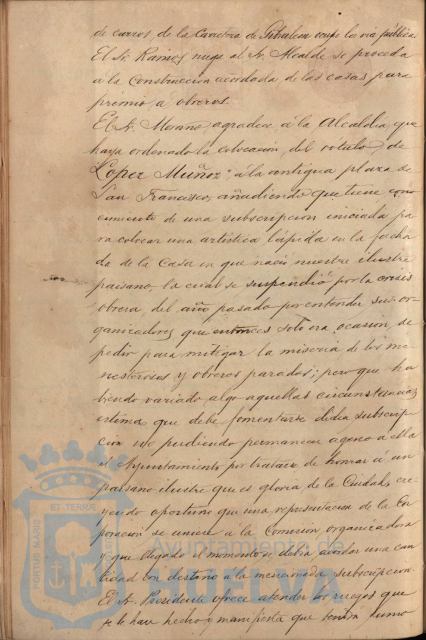 de carros de la Carretera de Gibraleon ocupe la via pública.
El Sr. Ramos ruega al Sr. Alcalde se proceda
a la Construccion acordada de las casas para
premio, a obreros.
El Sr. Monno, agradece, á la Alcaldia, que
haya ordenado la colocacion, del rotulo, de
"Lopez Muñoz" a la antigua plaza de
San Francisco, añadiendo que tiene cono
cimiento de una subscripcion iniciada pa
ra colocar una artistica lápida en la facha
da de la Casa en que nació nuestro ilustre
paisano, la cual se suspendió por la crisis
obrera del año pasado por entender sus or
ganizadores que entonces solo era ocasion, de
pedir para mitigar la miseria de los me
nesterosos y obreros parados; pero que ha
biendo variado algo aquellas circunstancias
estima que debe fomentarse dicha subscrip
cion no pudiendo permanecer ageno a ella
el Ayuntamiento por tratarse de honrar á un
paisano ilustre que es gloria de la Ciudad, cre
yendo oportuno que una representacion de la Cor
poracion se uniera á la Comision organizadora
y que llegado el momento se debia acordar una can
tidad con destino a la mencionada subscripcion.
El Sr. Presidente ofrece atender los ruegos que
se le han hecho y manifiesta que tendrá sumo
PORTUS MARIS ET TERRAE
Ayuntamiento de
HUELVA